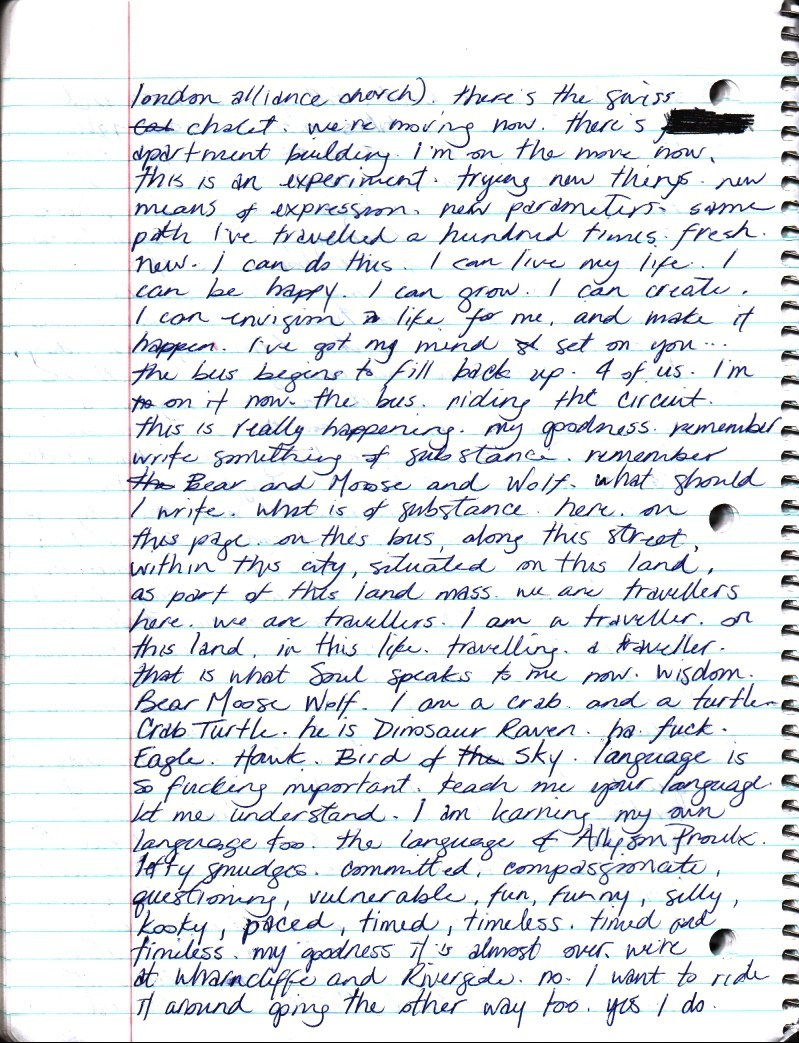 london alliance church). there's the swiss
chalet. we're moving now. there's
apartment building. i'm on the move now.
this is an experiment. trying new things. new
means of expression. new parameters. same
path i've travelled a hundred times. fresh.
new. I can do this. I can live my life. I
can be happy. I can grow. I can create.
I can envision a life for me, and make it
happen. I've got my mind set on you...
the bus begins to fill back up. 4 of us. I'm
on it now. the bus. riding the circuit.
this is really happening. my goodness. remember
write something of substance. remember
Bear and Moose and Wolf. what should
I write. what is of substance. here. on
this page. on this bus, along this street,
within this city, situated on this land,
as part of this land mass. we are travellers
here. we are travellers. I am a traveller. on
this land, in this life. travelling. a traveller.
that is what Soul speaks to me now. wisdom.
Bear Moose Wolf. I am a crab. and a turtle.
Crab Turtle. he is Dinosaur Raven. ha. fuck.
Eagle. Hawk. Bird of the Sky. language is
so fucking important. teach me your language.
let me understand. I am learning my own
language too. the language of Allyson Proulx.
lofty smudges. committed, compassionate,
questioning, vulnerable, fun, funny, silly,
kooky, paced, timed, timeless. timed and
timeless. my goodness it is almost over. we're
at wharncliffe and Riverside. no. I want to ride
it around going the other way too. yes I do.